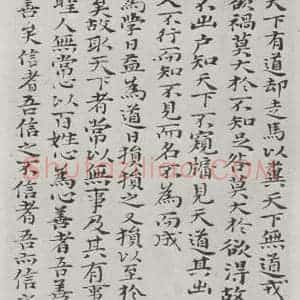 天下有道却走馬以糞天下無道戎
欲禍莫大於不知足咎莫大於欲得故
不出户知天下不窺牖見天道其出
人不行而知不見而名不為而成
為學日益為道日損損之又損以至於
矣故取天下者常以無事及其有事
聖人無常心以百姓心為心善者吾善
善矣信者吾信之不信者吾亦信之
Shufaziliao.COM